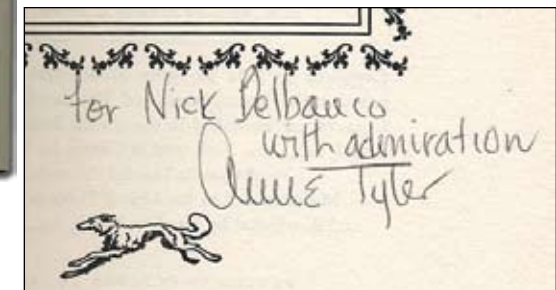 for Nick Delbanco
with admiration
Anne Tyler